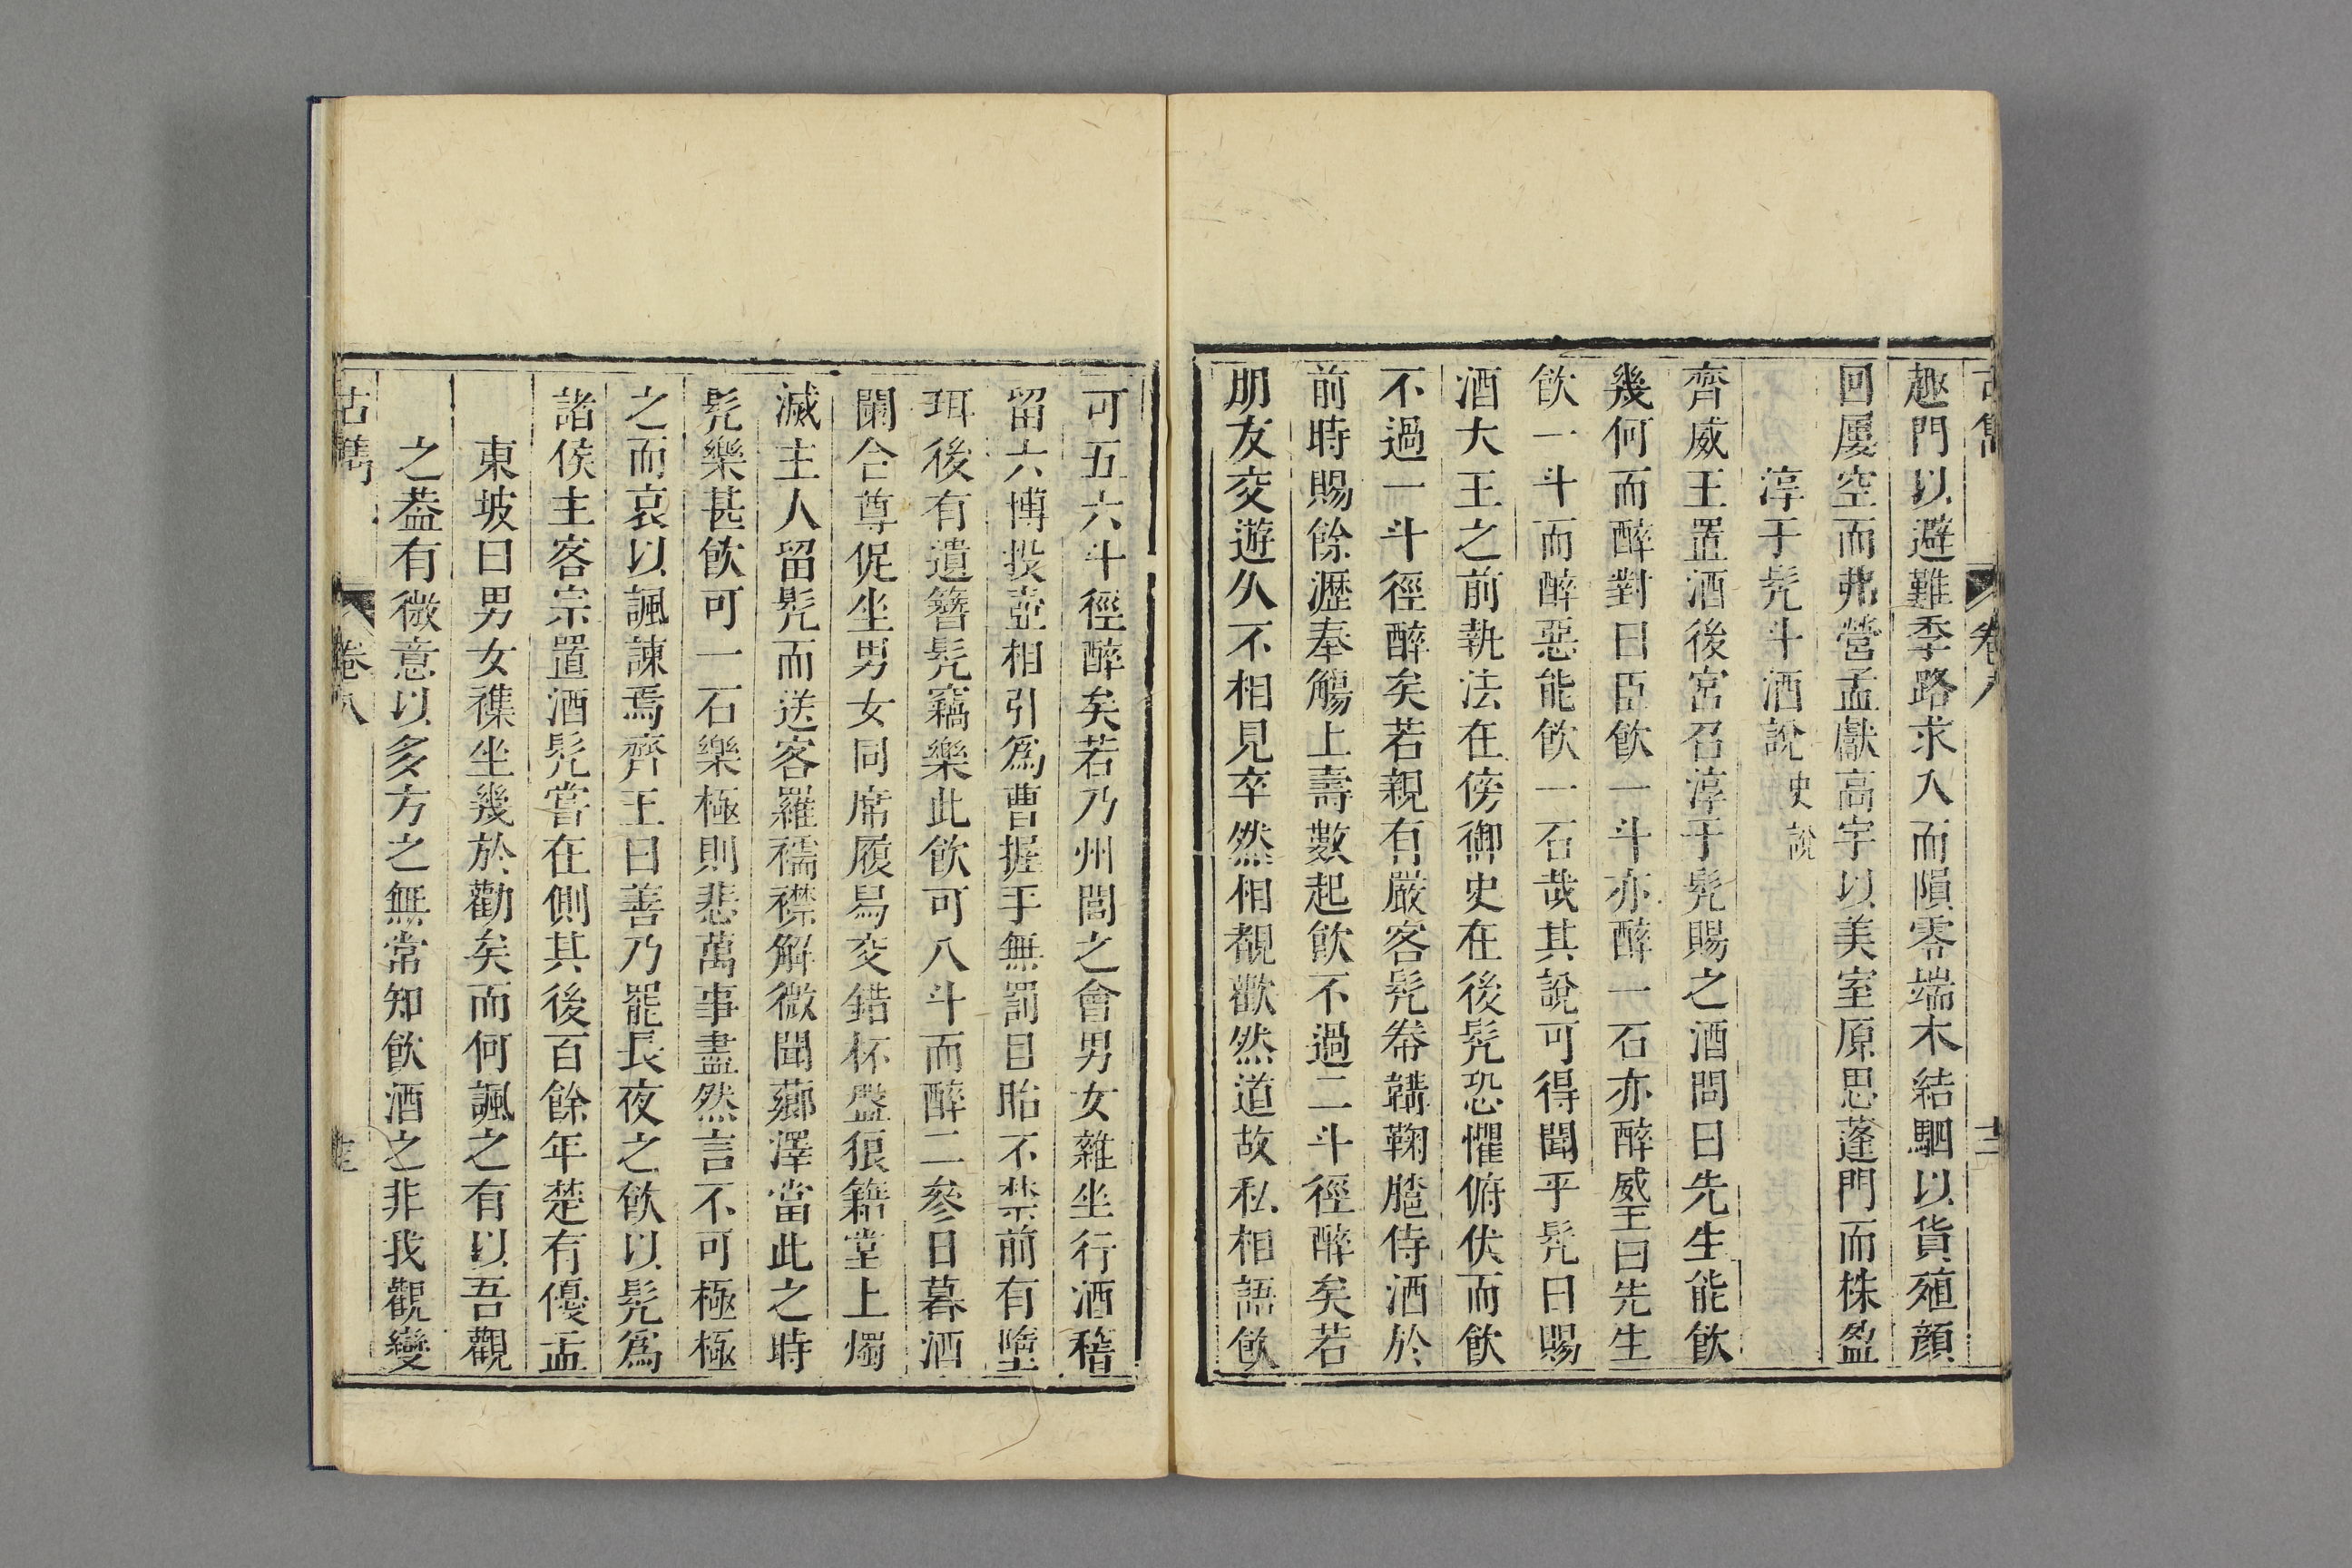 古雋 卷八 十二
趣門以避難季路求入而隕零端木結駟以貨殖顔
回屢空而弗營孟獻高宇以美室原思蓬門而株盈
淳于髠斗酒說 史說
齊威王置酒後宮召淳于髠賜之酒問曰先生能飲
幾何而醉對曰臣飲一斗亦醉一石亦醉威王曰先生
飲一斗而醉惡能飲一石哉其說可得聞乎髠曰賜
酒大王之前執法在傍御史在後髠恐懼俯伏而飲
不過一斗徑醉矣若親有嚴客髠帣韝鞠𦜕侍酒於
前時賜餘瀝奉觴上壽數起飲不過二斗徑醉矣若
朋友交遊久不相見卒然相覩歡然道故私相語飲
可五六斗徑醉矣若乃州閭之會男女雜坐行酒稽
留六博投壺相引爲曹握手無罰目眙不禁前有墮
珥後有遺簪髠竊樂此飲可八斗而醉二參日暮酒
闌合尊促坐男女同席履舄交錯杯盤狼籍堂上燭
滅主人留髠而送客羅襦襟解微聞薌澤當此之時
髠樂甚飲可一石樂極則悲萬事盡然言不可極極
之而哀以諷諫焉齊王曰善乃罷長夜之飲以髠爲
諸侯主客宗置酒髠嘗在側其後百餘年楚有優孟
東坡曰男女襍坐幾於勸矣而何諷之有以吾觀
之葢有微意以多方之無常知飲酒之非我觀變
古雋 卷八